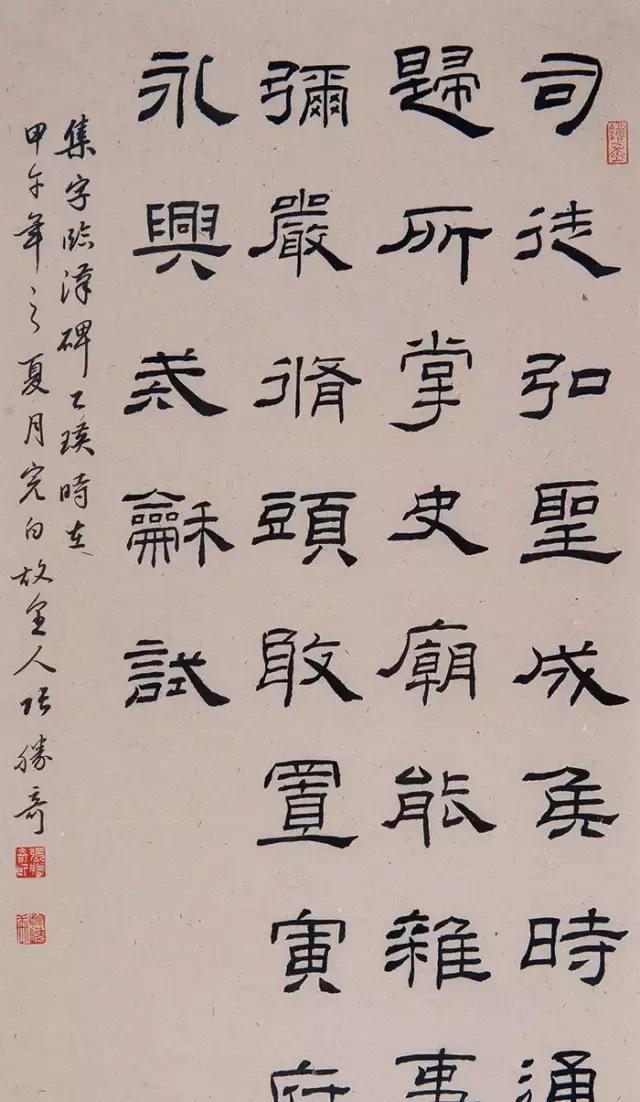 司徒弘聖成侯時通
歸所掌史廟能雜事
彌嚴脩頭敢置寅府
永興恭龢試
集字臨漢碑乙瑛時在
甲午年之夏月完白故里人張勝奇